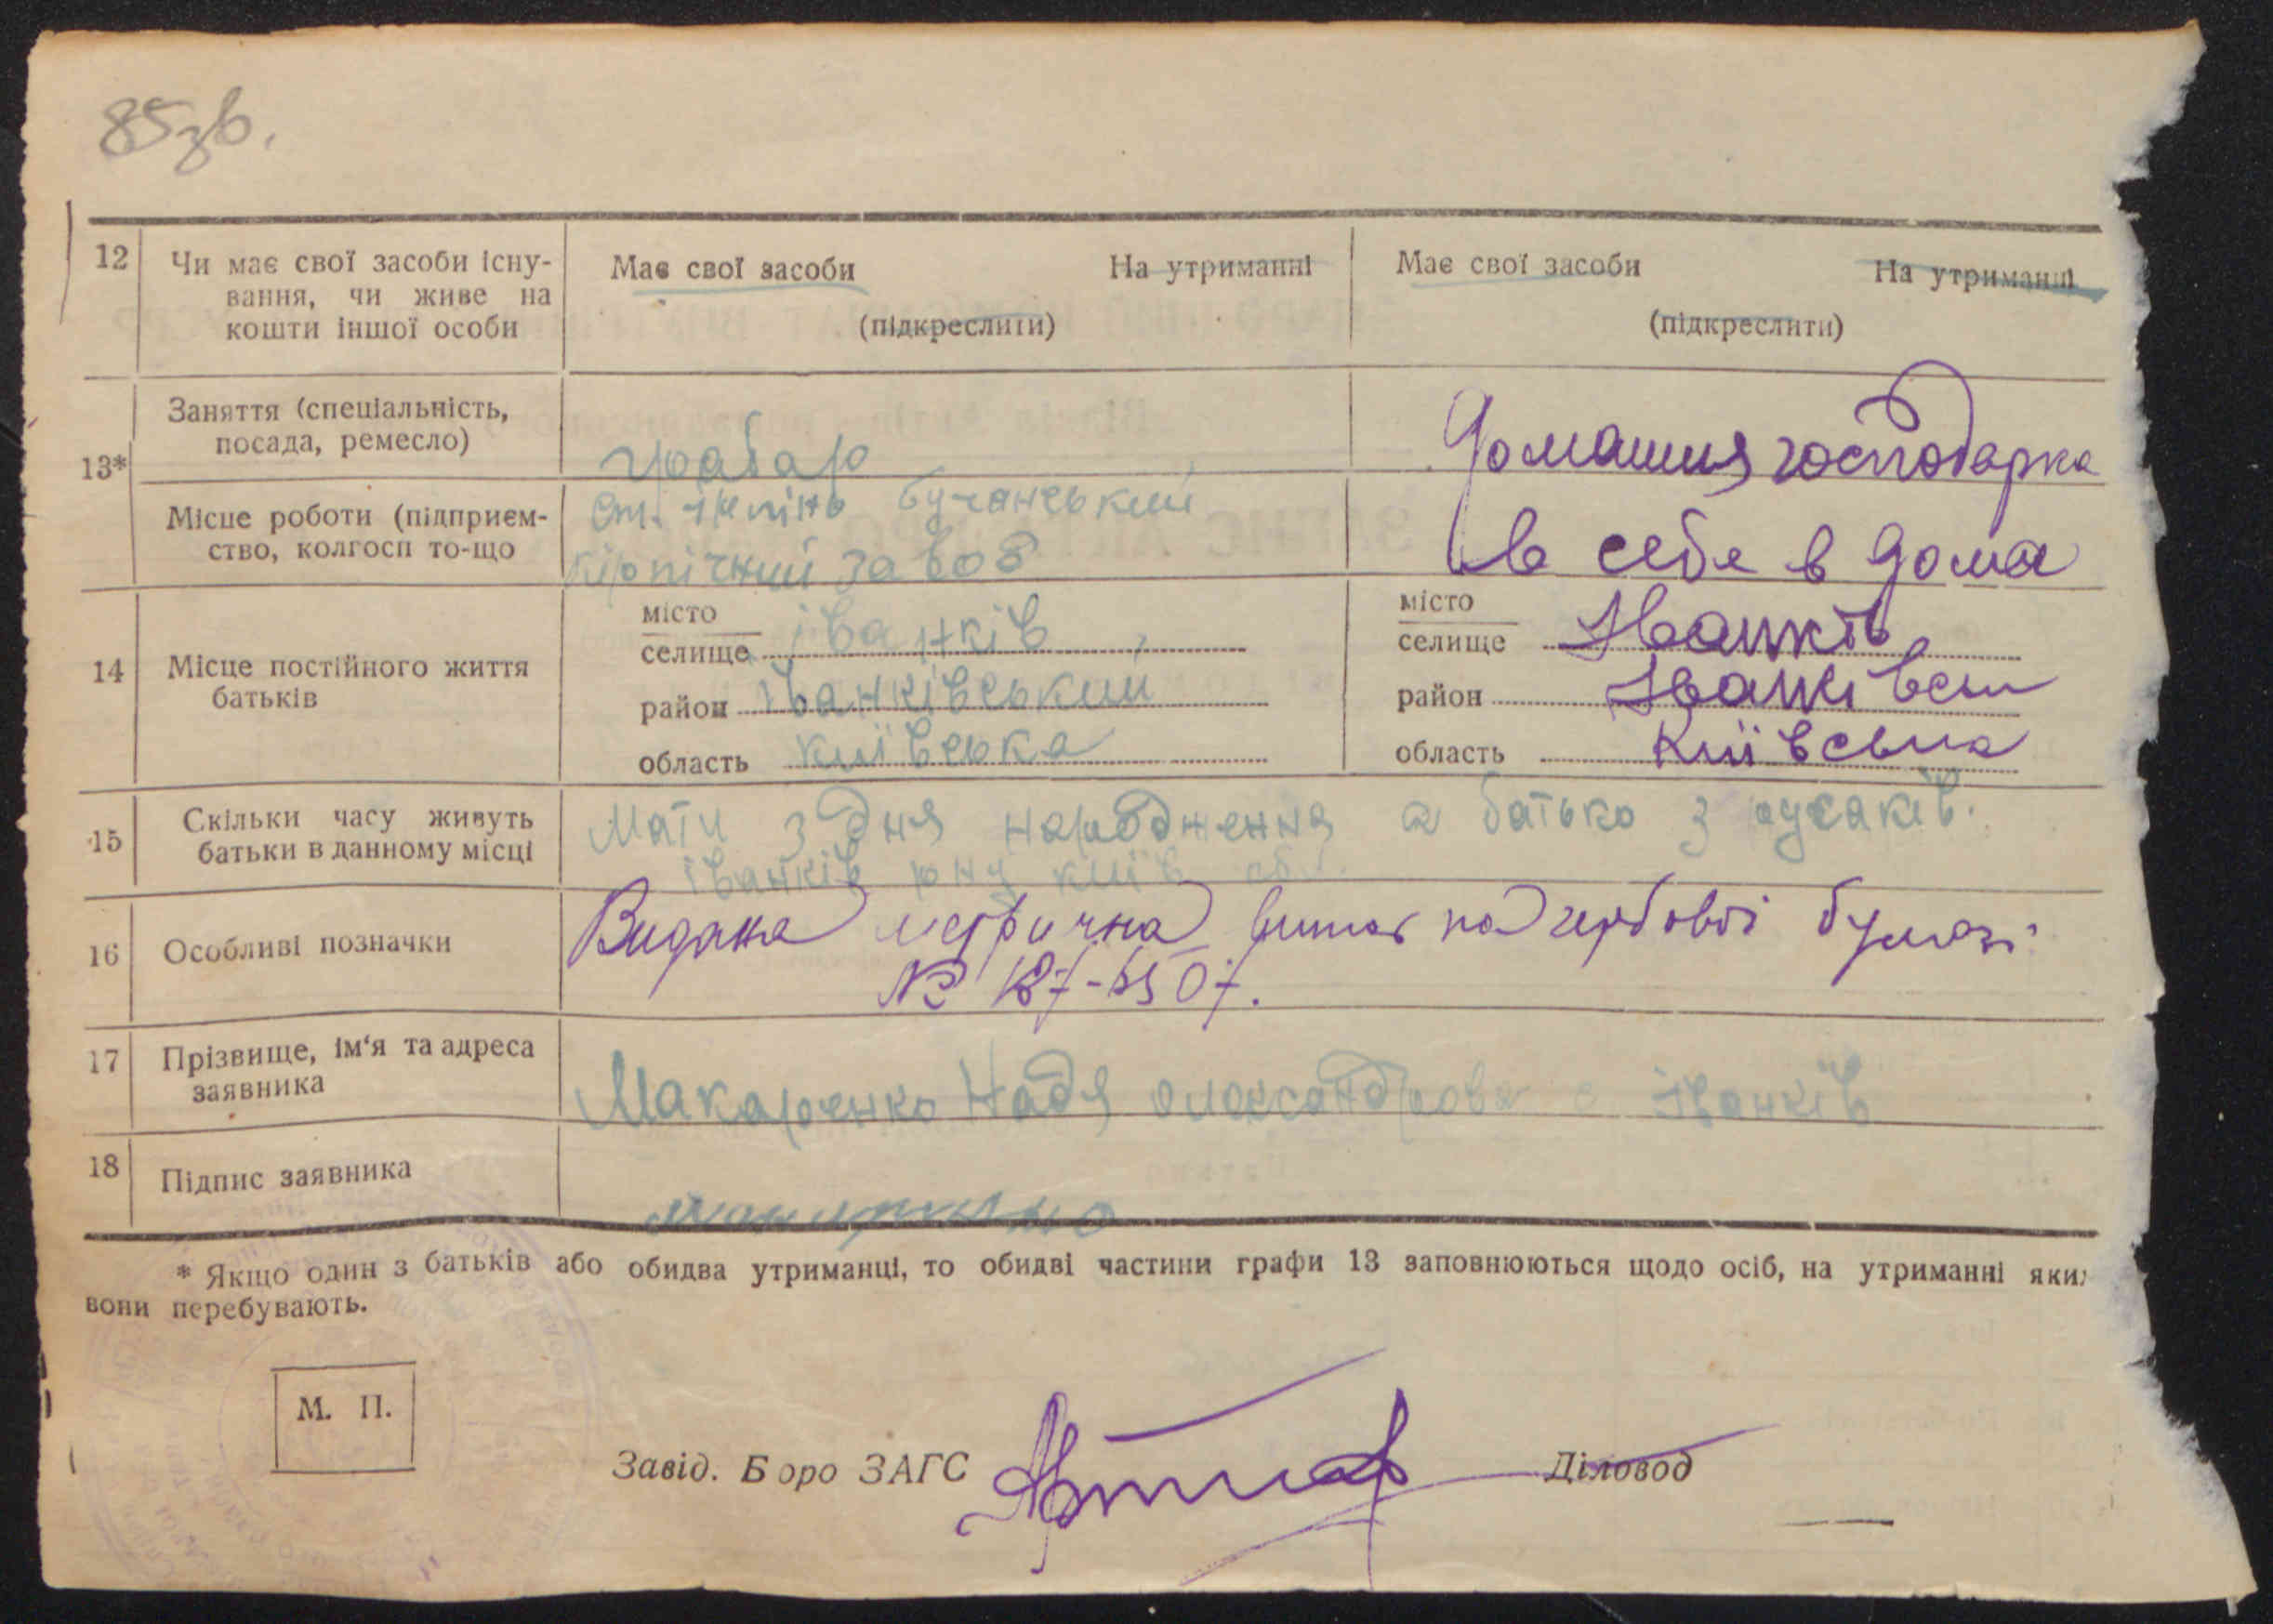 85зв.
12 Чи має свої засоби існу-
вання, чи живе на
кошти іншої особи
Має свої засоби На утриманні
(підкреслити)
Має свої засоби На утриманні
(підкреслити)
13*
Заняття (спеціальність,
посада, ремесло)
грабар
Домашня господарка
Місце роботи (підприєм-
ство, колгосп то-що
ст. Ірпінь бучанський
кірпічний завод
в себе в дома
14 Місце постійного життя
батьків
місто
селище іванків
район іванківський
область київська
місто
селище Іванків
район Іванківськ
область Київська
15 Скільки часу живуть
батьки в данному місці
Мати з дня народження а батько з
іванків рну київ обл.
16 Особливі позначки
Видана метрична на гербовій бумазі
№
17 Прізвище, ім'я та адреса
заявника
Макаренко Надя олександрова с іванків
18 Підпис заявника
* Якщо один з батьків або обидва утриманці, то обидві частини графи 13 заповнюються щодо осіб, на утриманні яки
вони перебувають.
М. П.
Завід. Бюро ЗАГС
Діловод